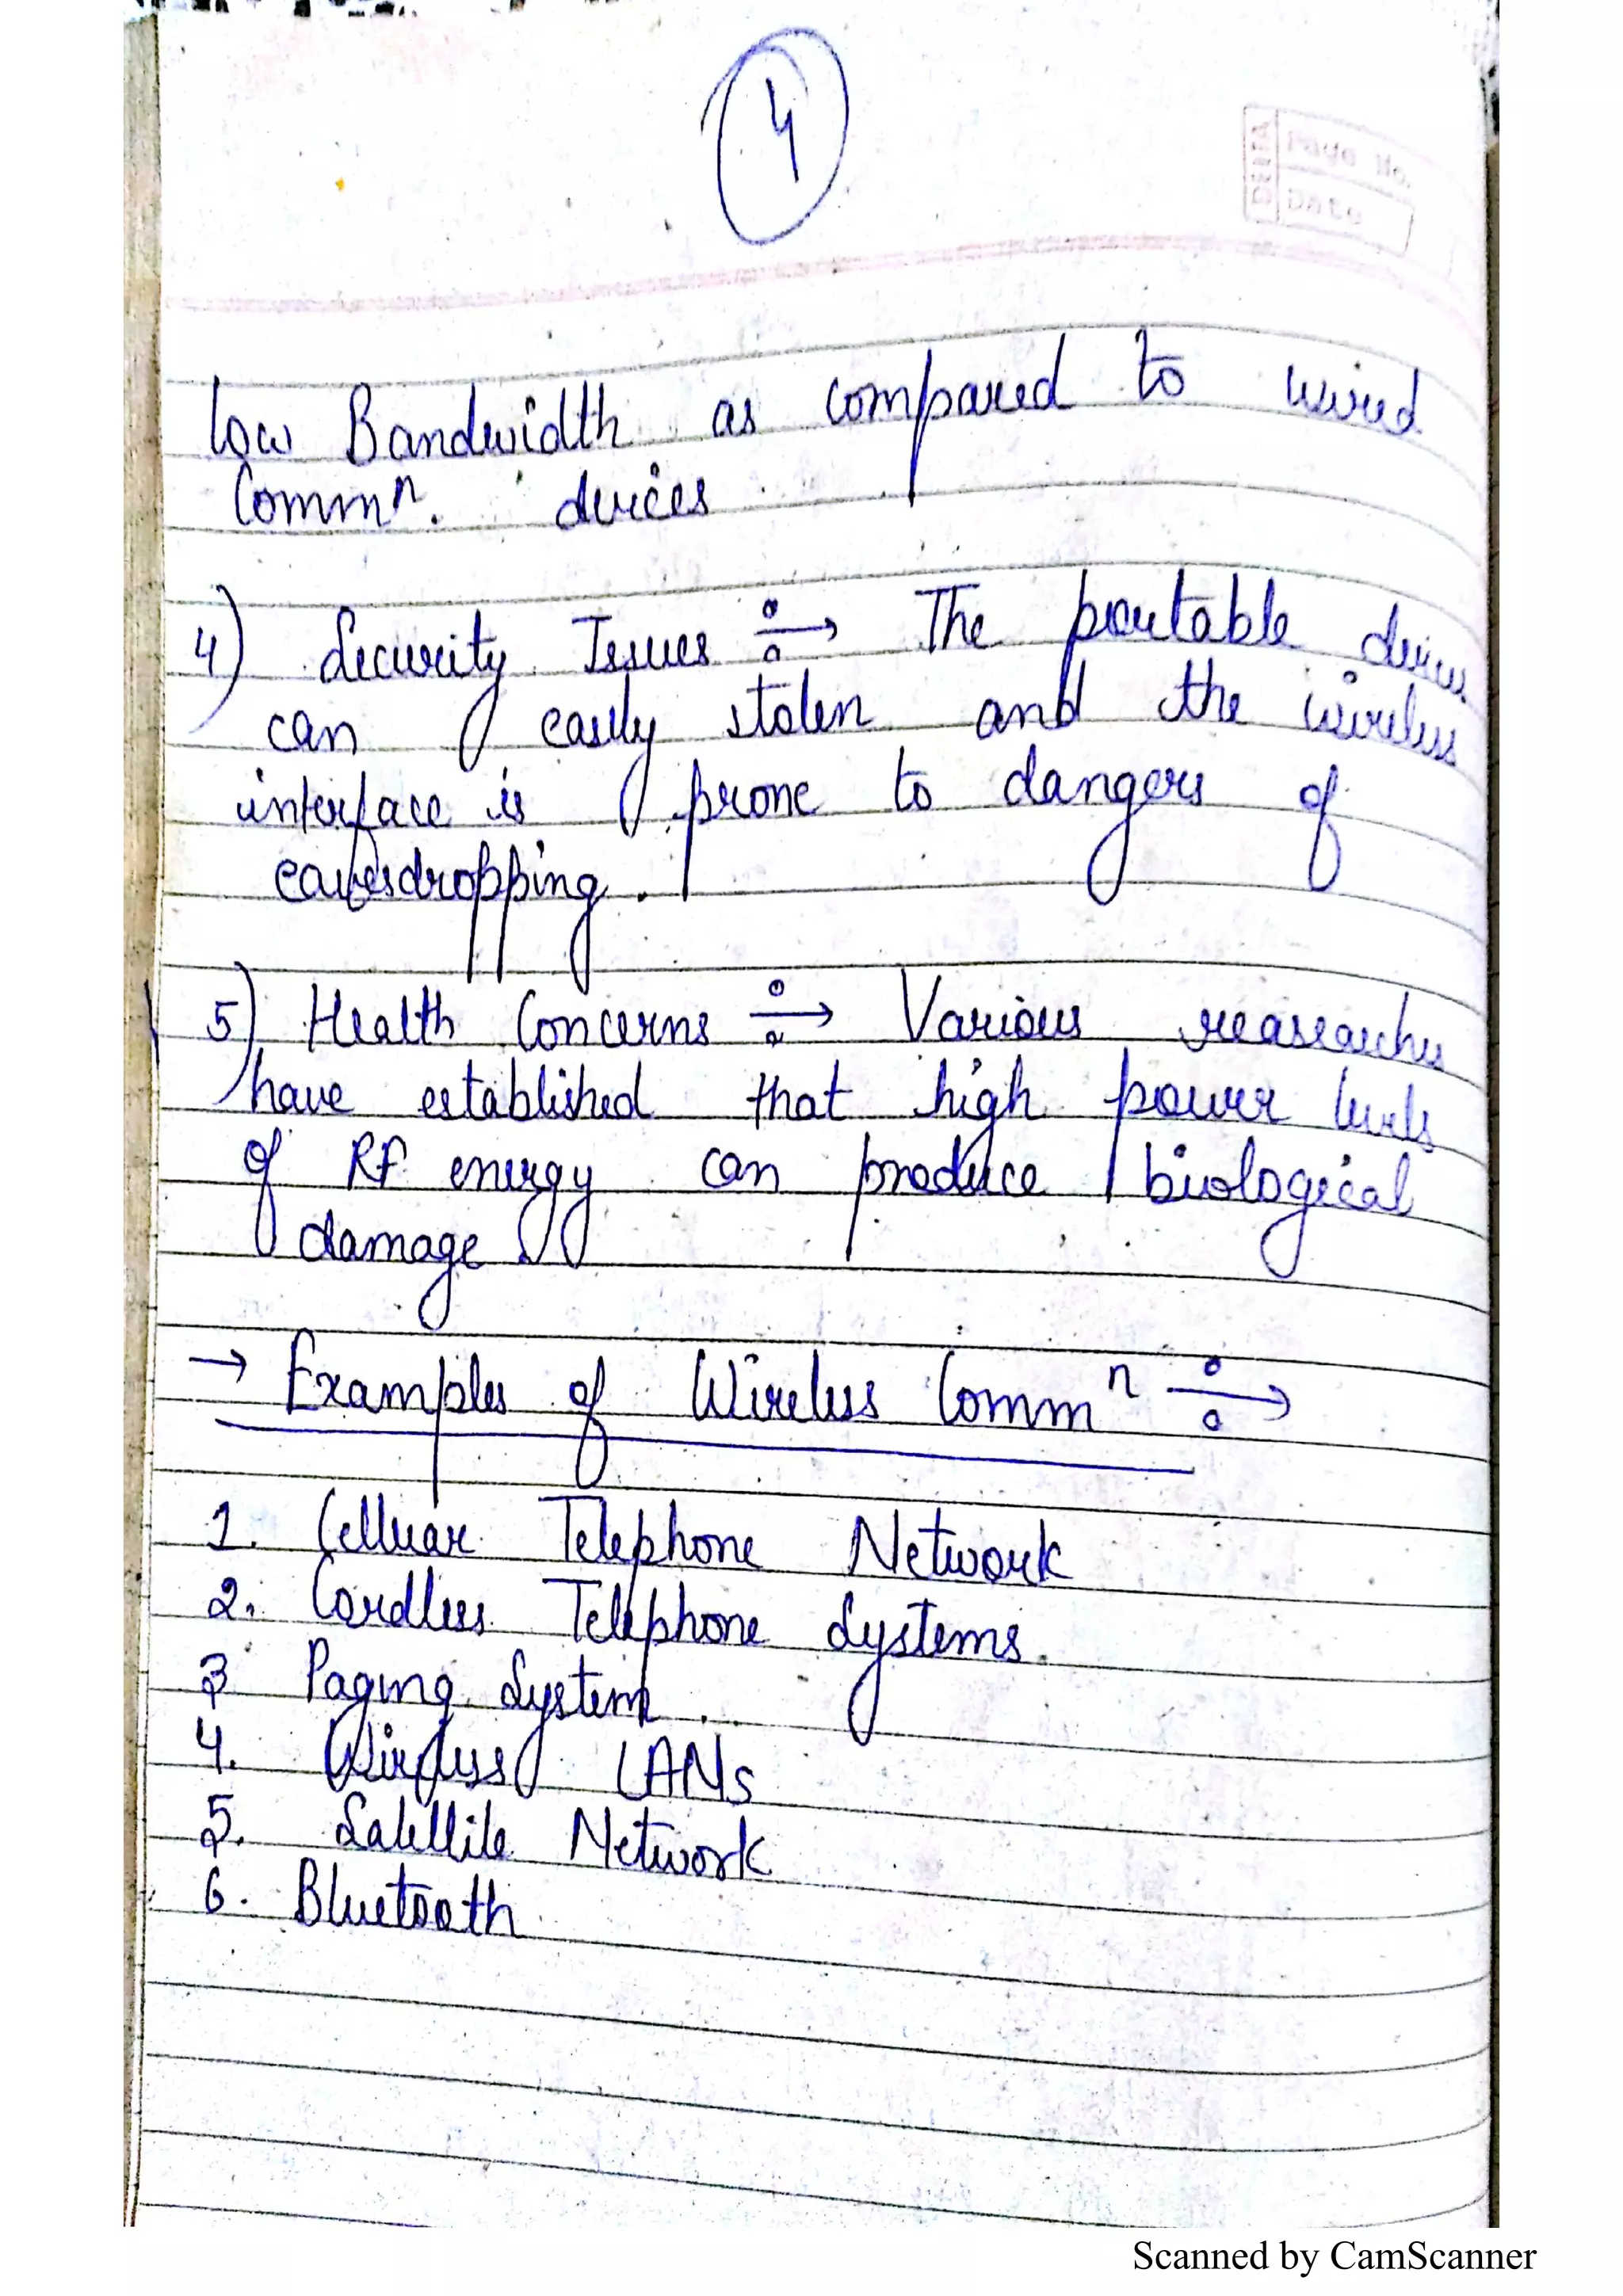 4
DELTA Page No.
Date
low Bandwidth as compared to wired
Commⁿ. devices
4) Security Issues :→ The portable devices
can easily stolen and the wireless
interface is prone to dangers of
eavesdropping.
5) Health Concerns :→ Various reasearches
have established that high power levels
of RF energy can produce biological
damage.
→ Examples of Wireless Commⁿ :→
1. Celluar Telephone Network
2. Cordless Telephone Systems.
3. Paging System.
4. Wireless LANs
5. Satellite Network
6. Bluetooth
Scanned by CamScanner